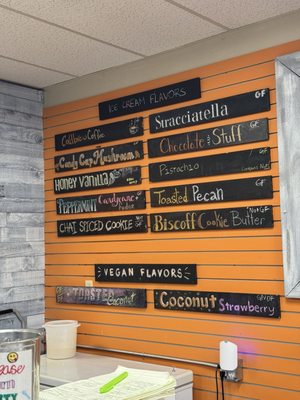 ICE CREAM FLAVORS
GF
Stracciatella
Coffee
Chocolate & Stuff
GF
Candy Cap Mushroom
Pistachio
GF
Honey Vanilla
Toasted Pecan
GF
PEPPERMINT Candycane
CHAI SPICED COOKIE
Biscoff Cookie Butter
GF
VEGAN FLAVORS
TOASTED Coconut
Coconut Strawberry
GF
Please